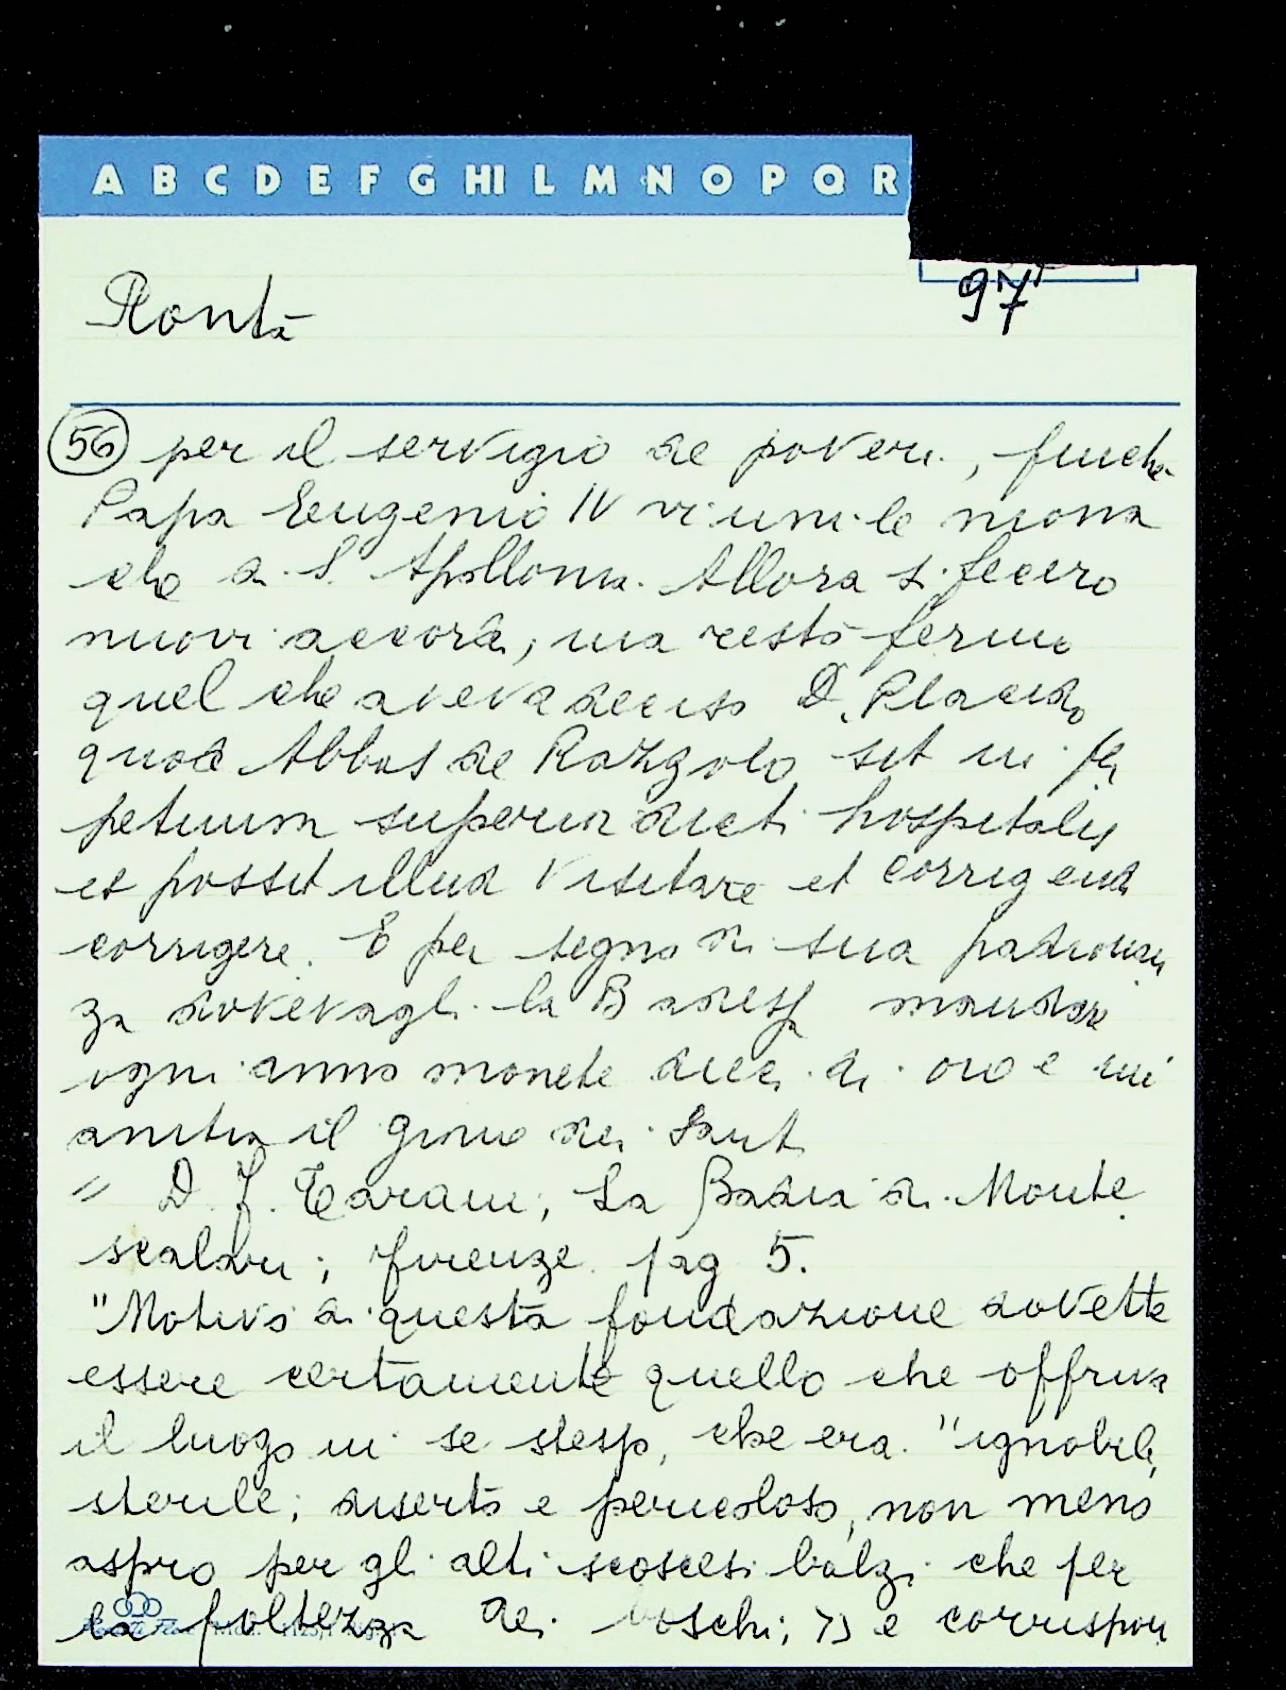 A B C D E F G HI L M N O P Q R
97
Ronta
56 per il servigio de poveri, finche
Papa Eugenio IV vi uni le mona
che di S. Apollonia. Allora si fecero
nuovi accordi, ma restò fermo
quel che aveva deciso D. Placido
quod Abbas de Razzolo sit in per
petuum superior dicti hospitalis
et possit illud visitare et corrigenda
corrigere. E per segno di sua padronan
za dovevagli la Badessa mandare
ogni anno monete dieci di oro e
il giorno dei Santi
" D. F. Tarani; La Badia di Monte
scalari; Firenze pag 5.
"Motivo di questa fondazione dovette
essere certamente quello che offriva
il luogo in se stesso, che era "ignobile,
sterile; diserto e pericoloso, non meno
aspro per gli alti scoscesi balzi che per
la foltezza dei boschi; e corrispon